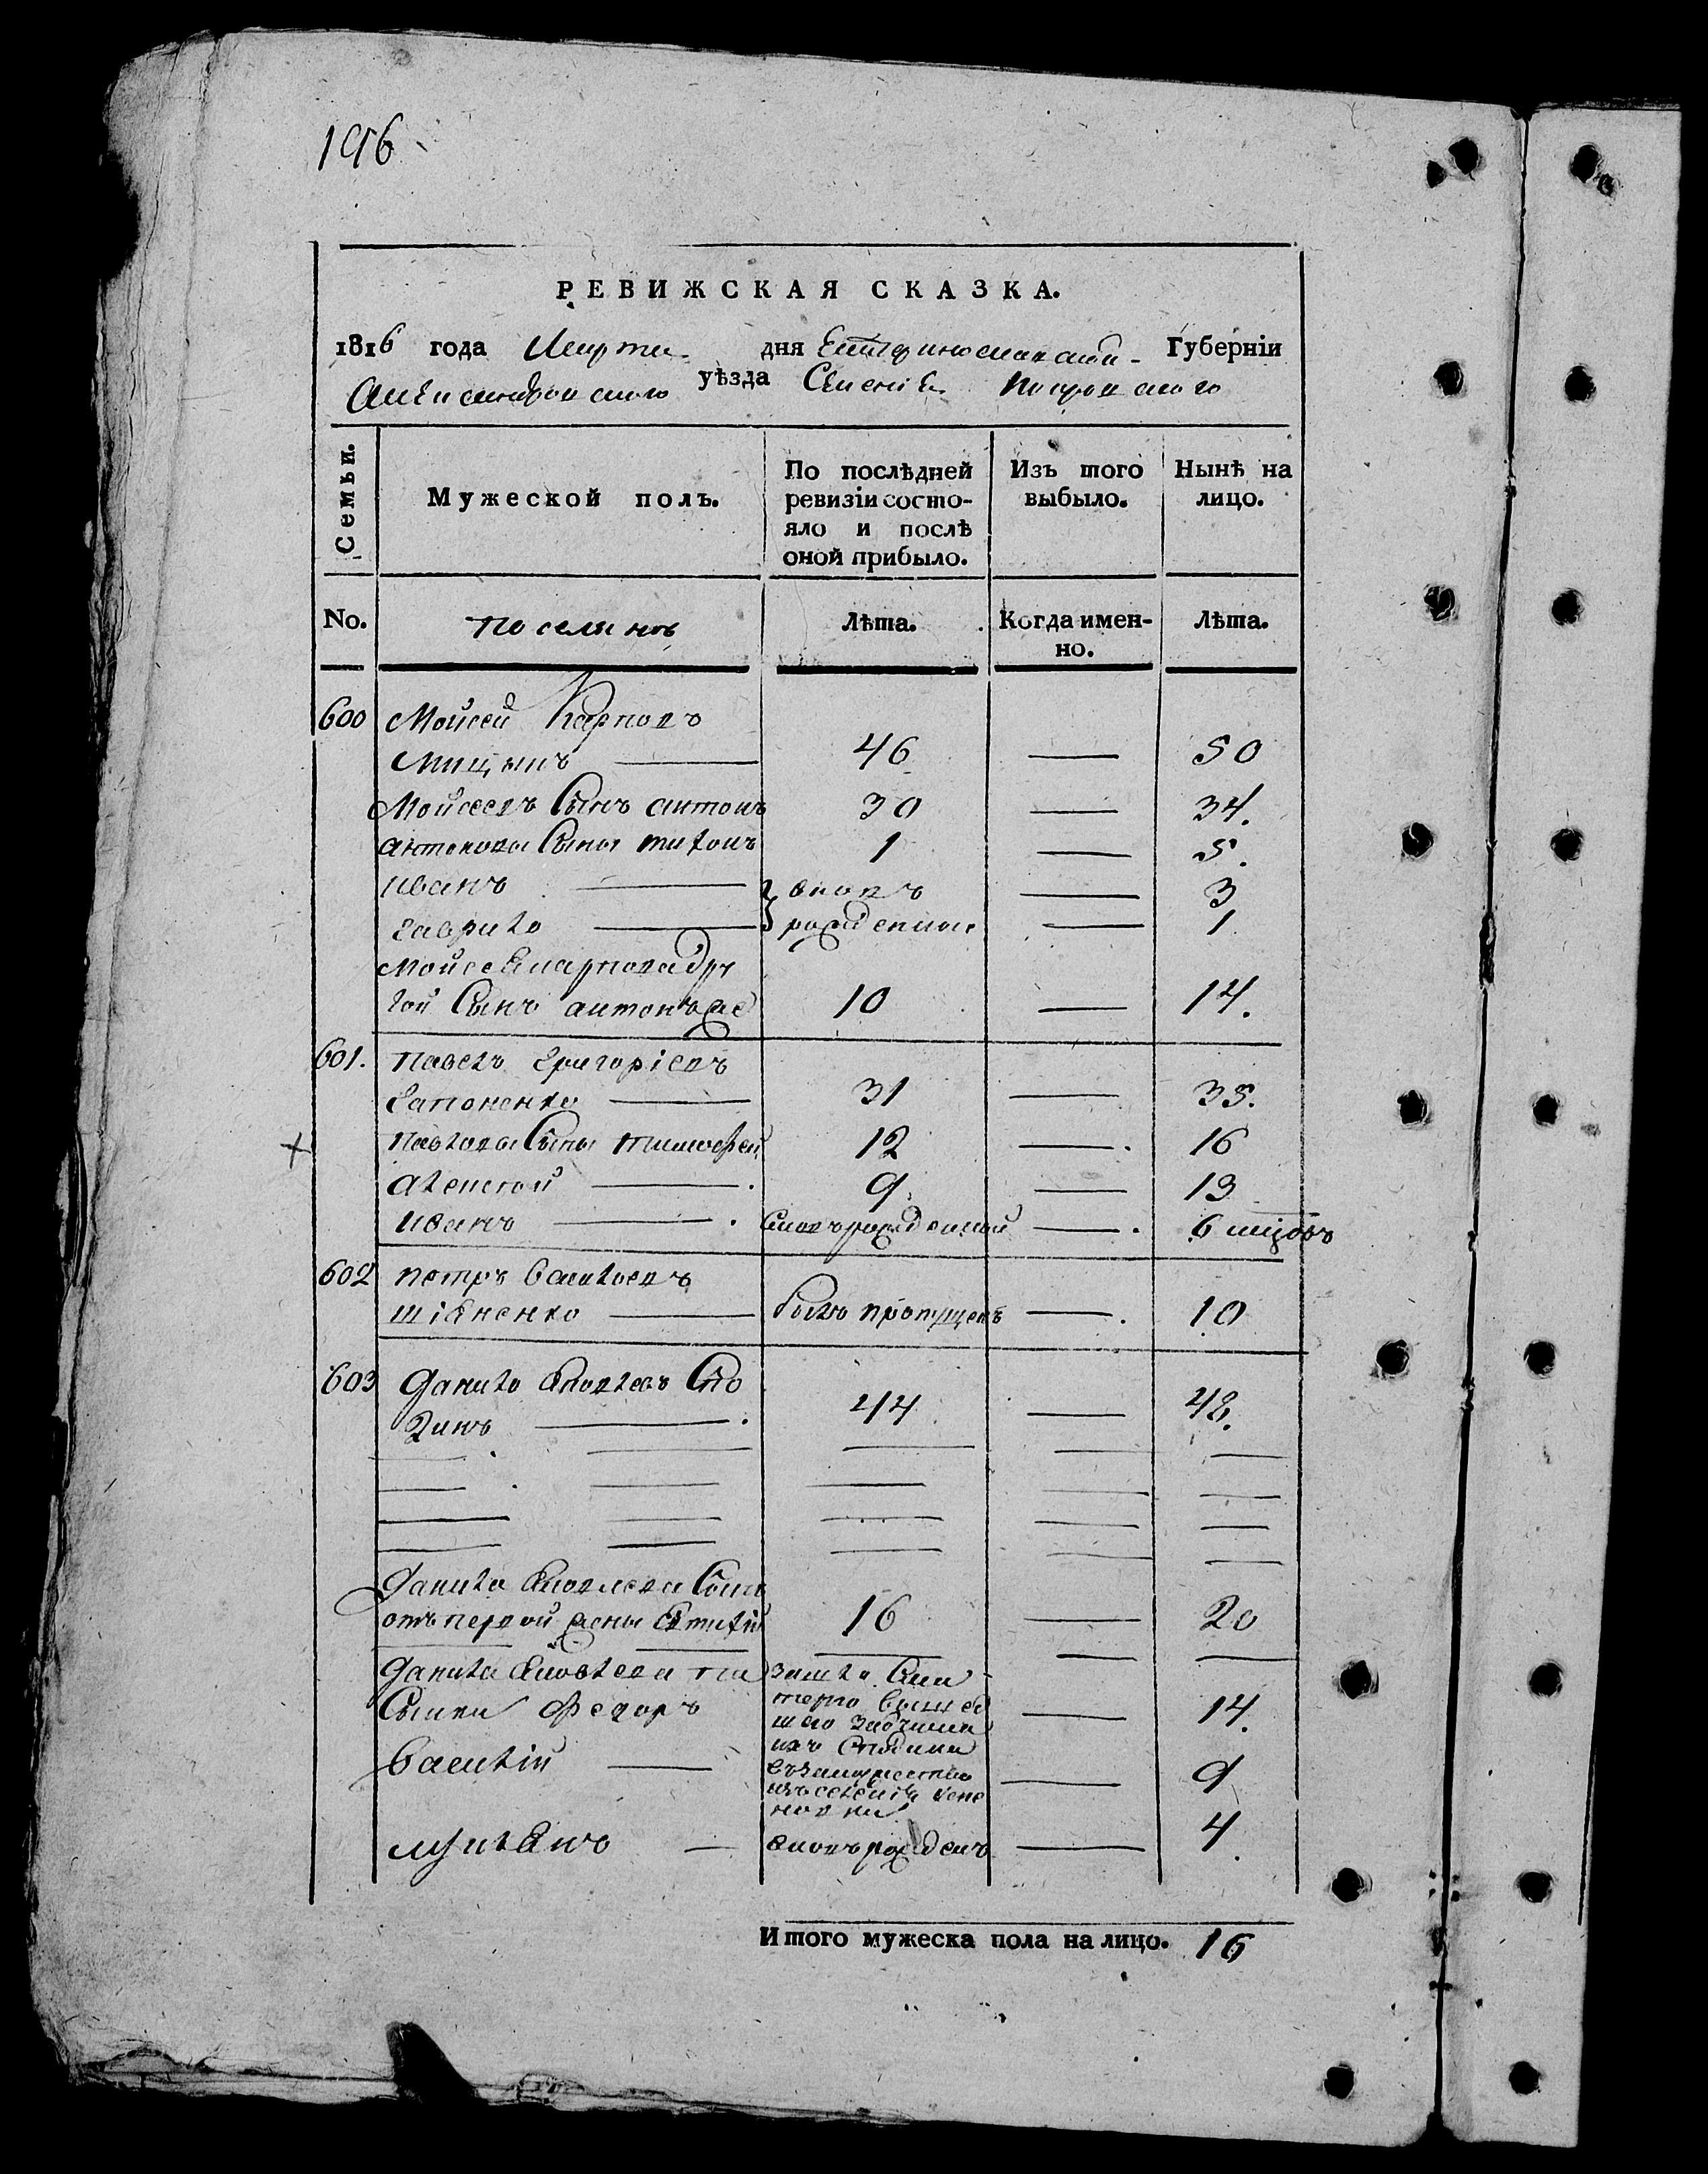 196
РЕВИЖСКАЯ СКАЗКА.
1816 года Марта дня Екатеринославской Губерніи
Александровского уѣзда Селенія Покровского
Семьи.
Мужеской полъ.
По послѣдней ревизіи состо-
яло и послѣ
оной прибыло.
Изъ того выбыло.
Нынѣ на лицо.
No.
поселянъ
Лѣта.
Когда имен-
но.
Лѣта.
600 Мойсей Карповъ
Мицынъ — 46 — 50
Мойсеевъ Сынъ антонъ 30 — 34.
антоновы Сыны титонъ 1 — 5.
иванъ — вновь — 3
гаврило — рожденны — 1
Мойсея карпова дру
гой Сынъ антонъ же 10 — 14.
601. павелъ григоріевъ
Гапоненко — 31 — 35.
павловы Сыны тимофей 12 — 16
алексей — 9 — 13
иванъ — вновьрожденной — 6 мцовъ
602 петръ васильевъ
шіяненко — былъ пропущенъ — 10
603 Данило яковлевъ Спо
динъ — 44 — 48.
Данила яковлева Сынъ
отъ первой жены 16 — 20
Данила яковлева па
Сынки Федоръ — 14.
василій — 9
лукянъ — вновьрожденъ — 4.
Итого мужеска пола на лицо. 16